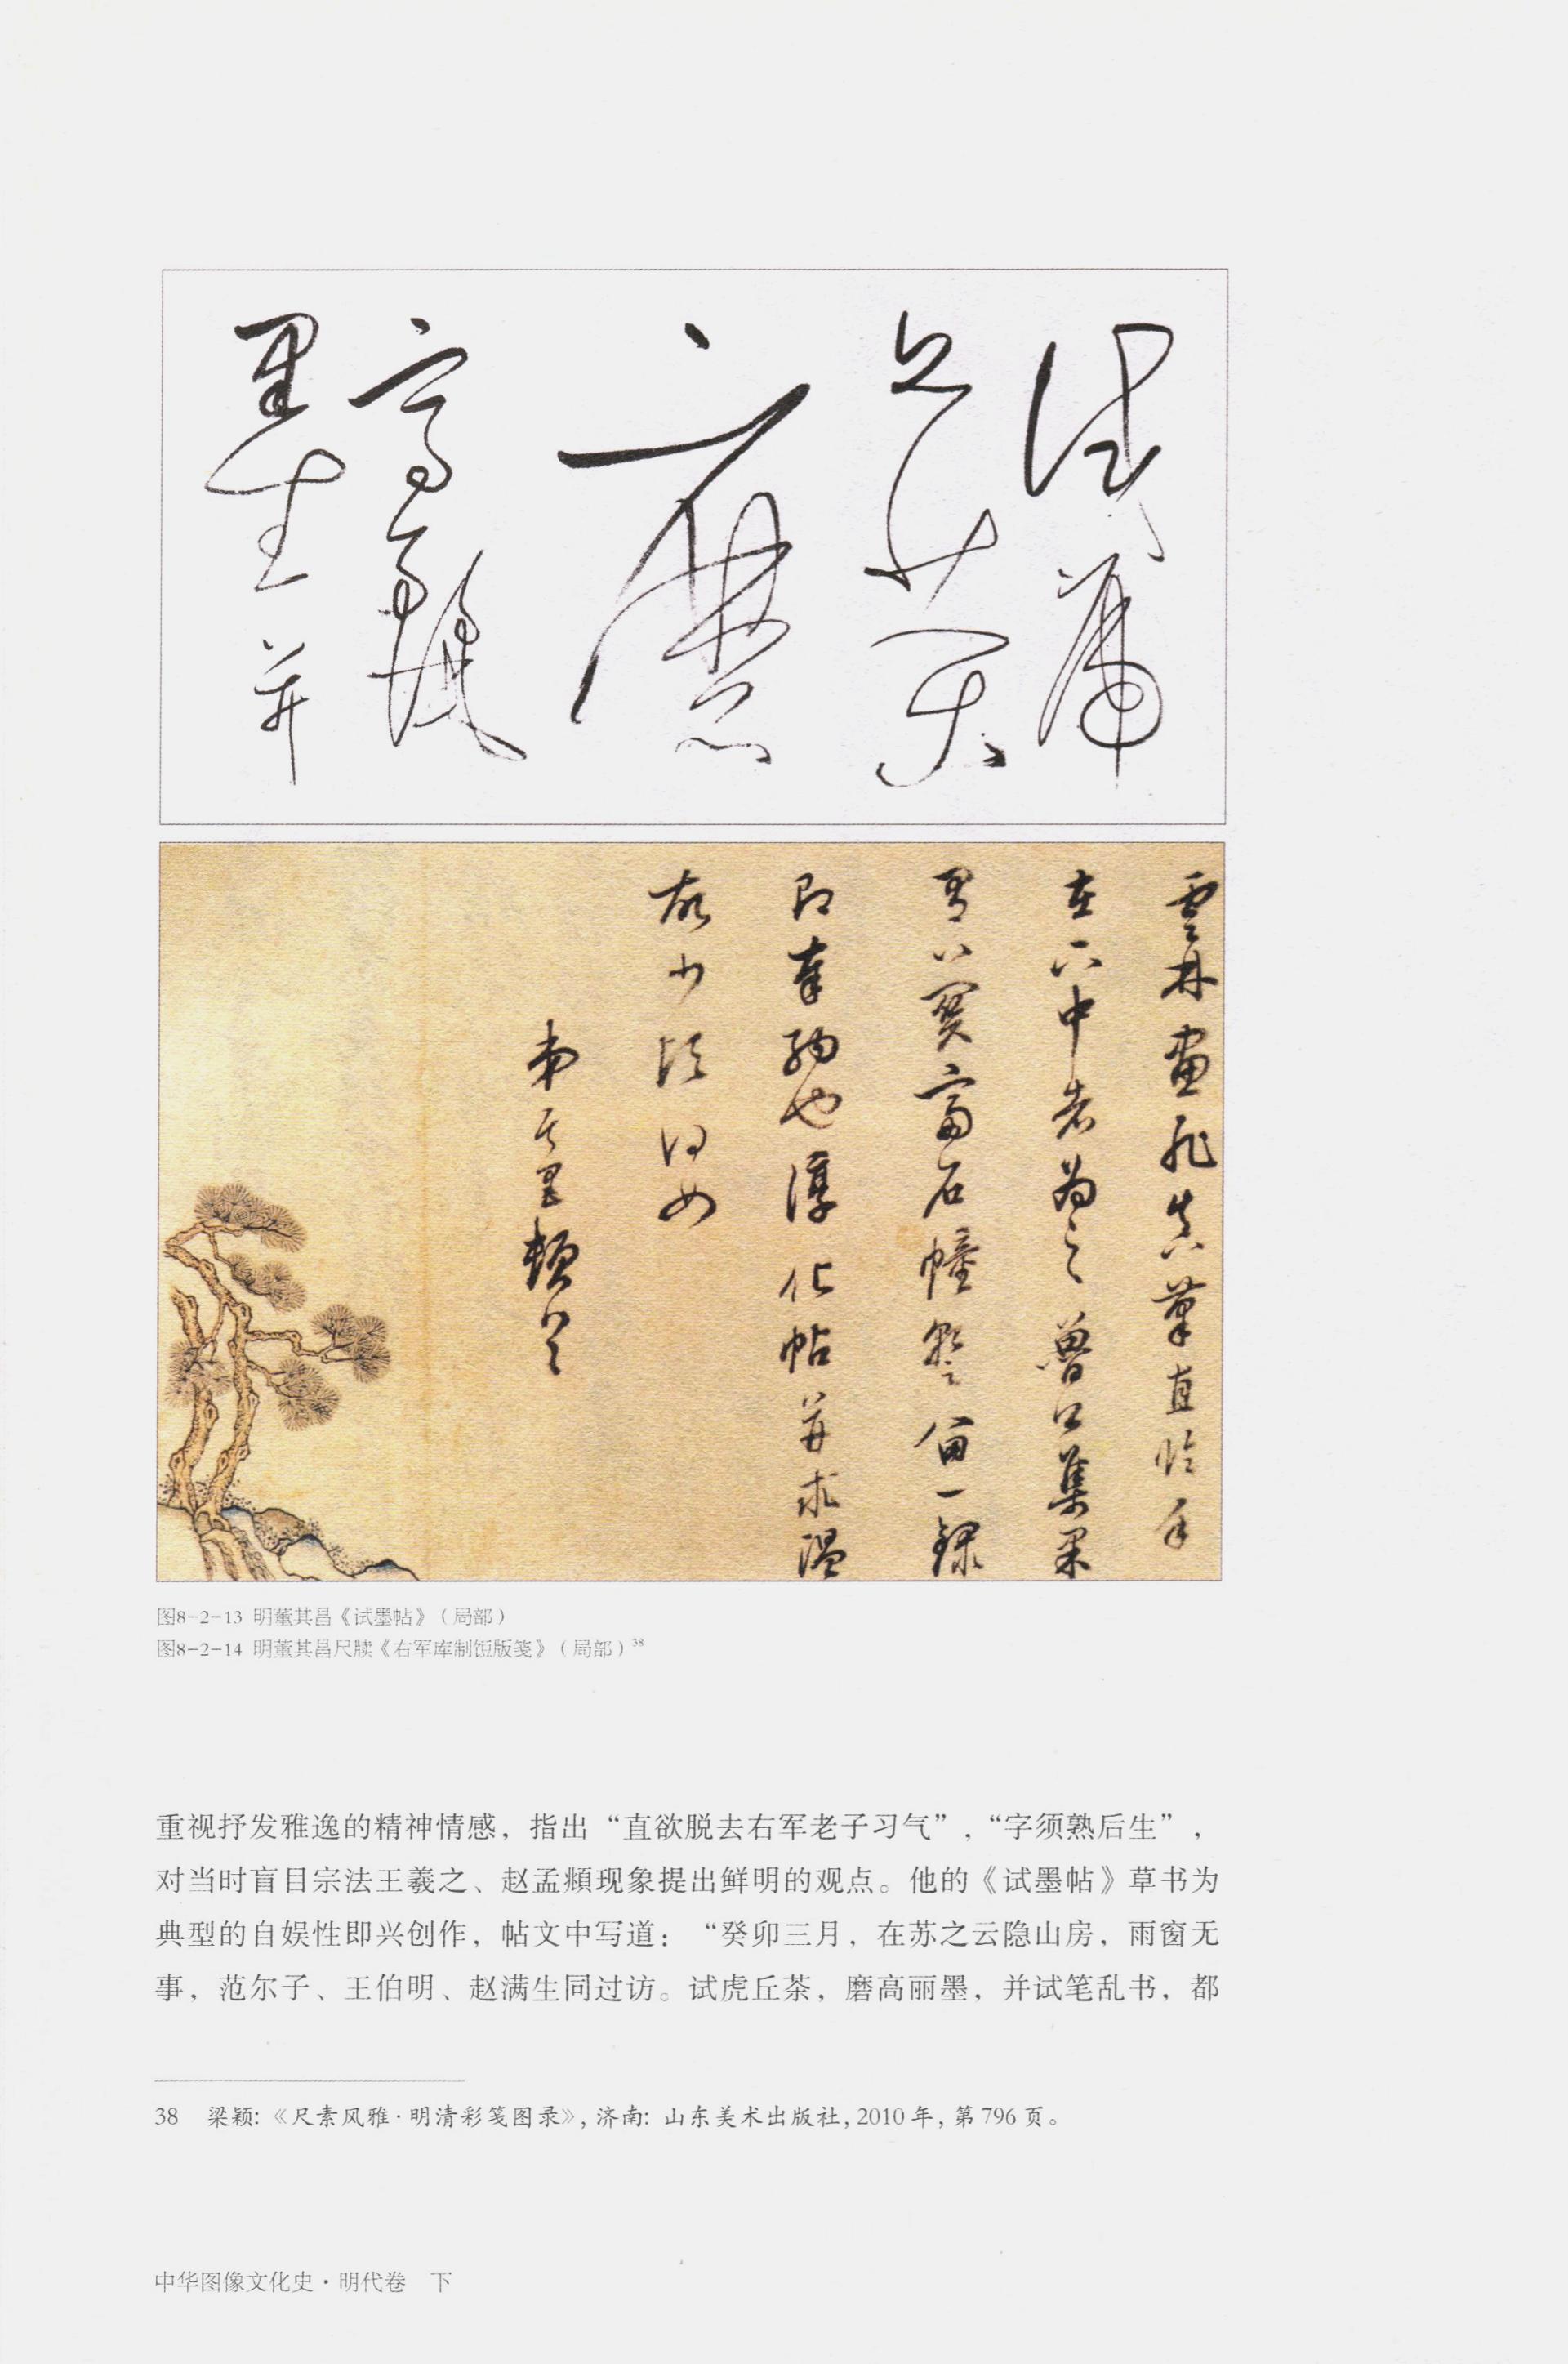 試虎
丘茶
磨
高麗
墨并
雲林畫非真筆直臨手
在中者為之曾集
寶石幢留一錄
即奉納也淳化帖并求
故少
弟其昌頓首
图8-2-13 明董其昌《试墨帖》（局部）
图8-2-14 明董其昌尺牍《右军库制饾版笺》（局部）38
重视抒发雅逸的精神情感，指出“直欲脱去右军老子习气”，“字须熟后生”，
对当时盲目宗法王羲之、赵孟頫现象提出鲜明的观点。他的《试墨帖》草书为
典型的自娱性即兴创作，帖文中写道：“癸卯三月，在苏之云隐山房，雨窗无
事，范尔子、王伯明、赵满生同过访。试虎丘茶，磨高丽墨，并试笔乱书，都
38 梁颖：《尺素风雅·明清彩笺图录》，济南：山东美术出版社，2010年，第796页。
中华图像文化史·明代卷 下